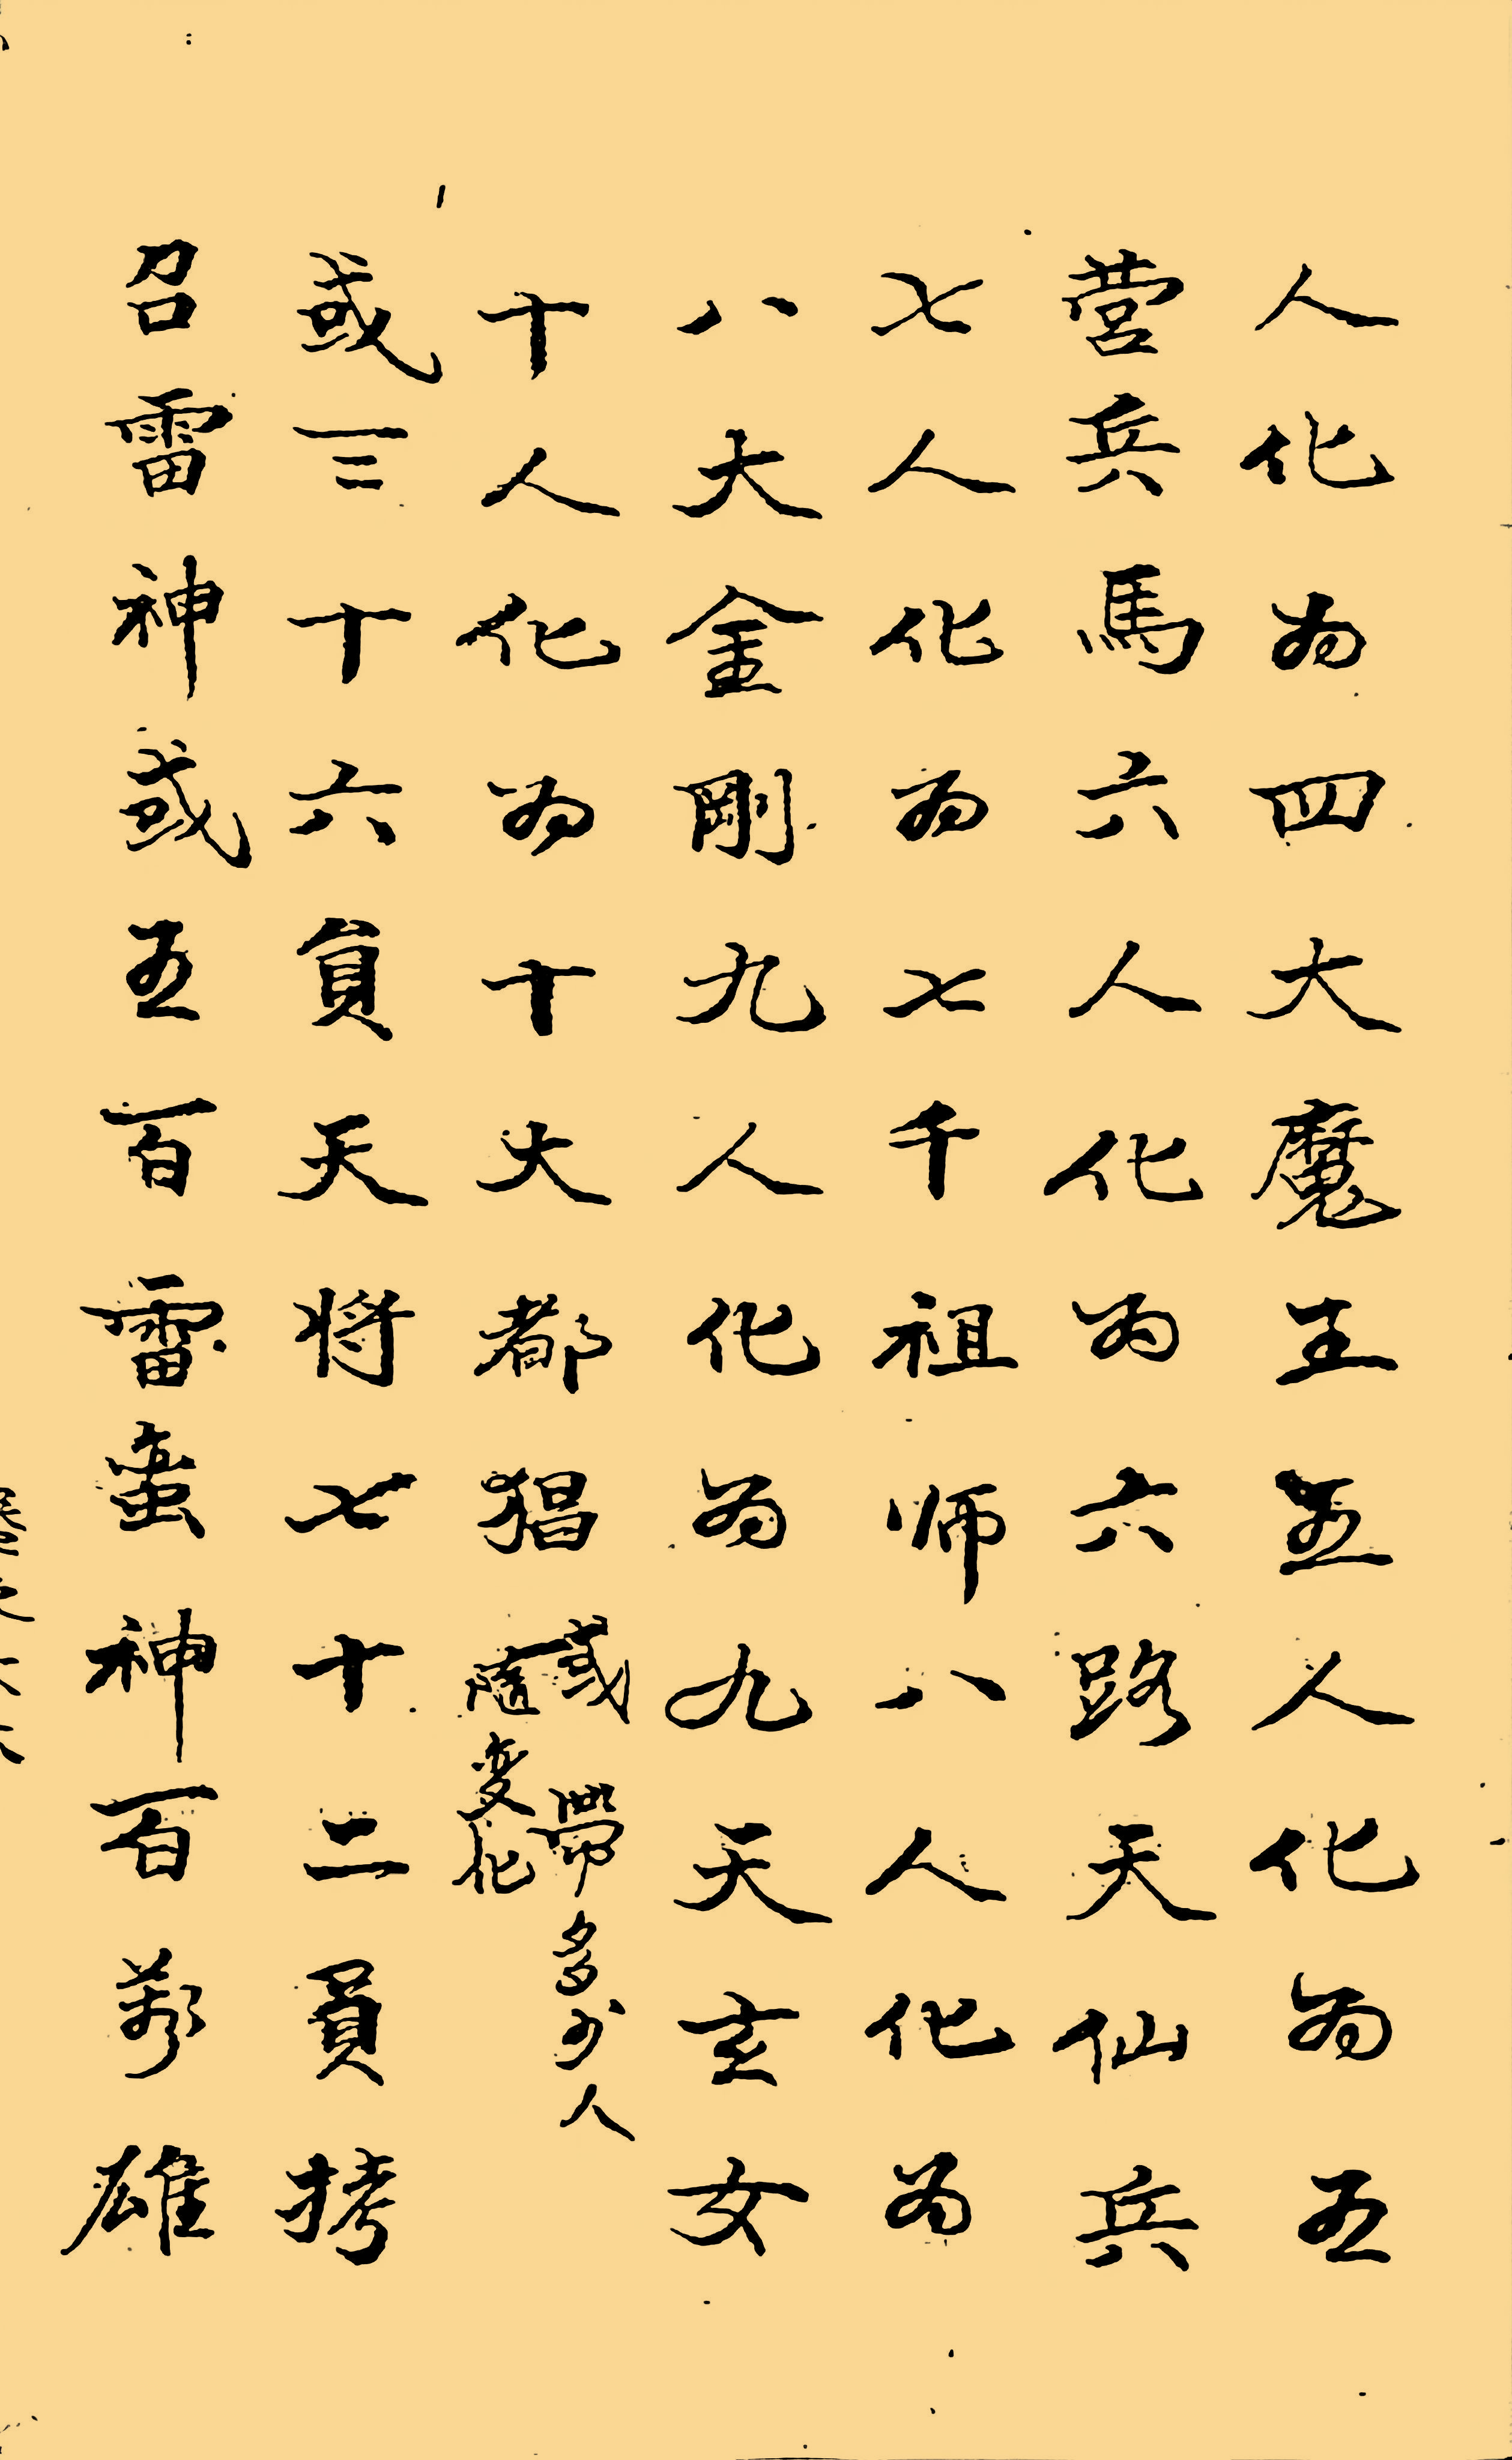 人化为四大魔王五人化为五
营兵馬六人化为六路天仙兵
七人化为七千祖师八人化为
八大金剛九人化为九天玄女
十人化为十大都猖
或帶多少人
隨变化
或三十六員天将七十二員拷
召雷神或五百雷蛮神百万雄